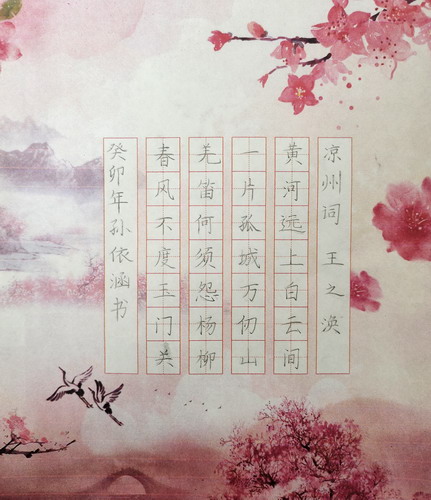 凉州词 王之涣
黄河远上白云间
一片孤城万仞山
羌笛何须怨杨柳
春风不度玉门关
癸卯年孙依涵书